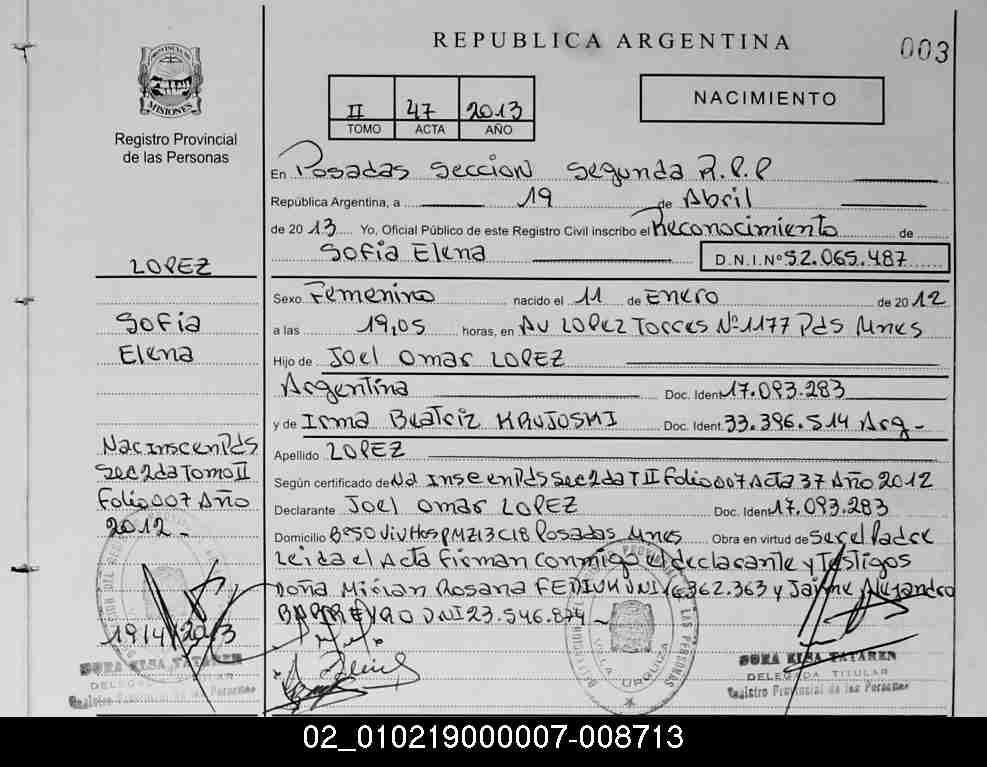 REPUBLICA ARGENTINA
003
PROVINCIA DE
MISIONES
Registro Provincial
de las Personas
II 47 2013
TOMO ACTA AÑO
NACIMIENTO
En Posadas Seccion Segunda R.P.P
República Argentina, a 19 de Abril
de 2013 Yo, Oficial Público de este Registro Civil inscribo el Reconocimiento de
Sofia Elena D.N.I.Nº 52.065.487
LOPEZ
Sofia
Elena
Sexo Femenino nacido el 11 de Enero de 2012
a las 19,05 horas, en Av LOPEZ Torres Nº 1177 Pds Mnes
Hijo de Joel Omar LOPEZ
Argentina Doc. Ident 17.093.283
y de Irma Beatriz KRUJOSKI Doc. Ident. 33.396.514 Arg-
Apellido LOPEZ
Según certificado de Na Insc en Pds Sec 2da T II Folio 007 Acta 37 Año 2012
Declarante Joel Omar LOPEZ Doc. Ident 17.093.283
Domicilio Bº 50 Viv Hos PMZ13C18 Posadas Mnes Obra en virtud de Ser el Padre
Leida el Acta Firman Conmigo el declarante y Testigos
Doña Mirian Rosana 362.363 y Jaime Alejandro
BARREYRO DNI 23.546.874
Nac insc en Pds
Sec 2da Tomo II
Folio 007 Año
2012 -
19/4/2013
DORA ELSA TATAREN
DELEGADA TITULAR
Registro Provincial de las Personas
VILLA URQUIZA
DORA ELSA TATAREN
DELEGADA TITULAR
Registro Provincial de las Personas
02_010219000007-008713